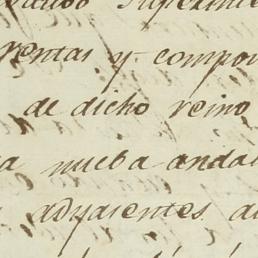 rentas y compo
de dicho reino
a nueba andal
adyasentes a